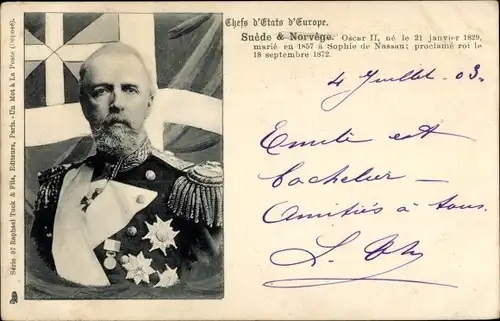 Chefs d'Etats d'Europe.
Suède & Norvège. Oscar II, né le 21 janvier 1829,
marié en 1857 à Sophie de Nassau; proclamé roi le
18 septembre 1872.
4 Juillet 03.
Emile est
bachelier –
Amitiés à tous.
Série 97 Raphael Tuck & Fils, Editeurs, Paris.-Un Mot à La Poste (Déposé).